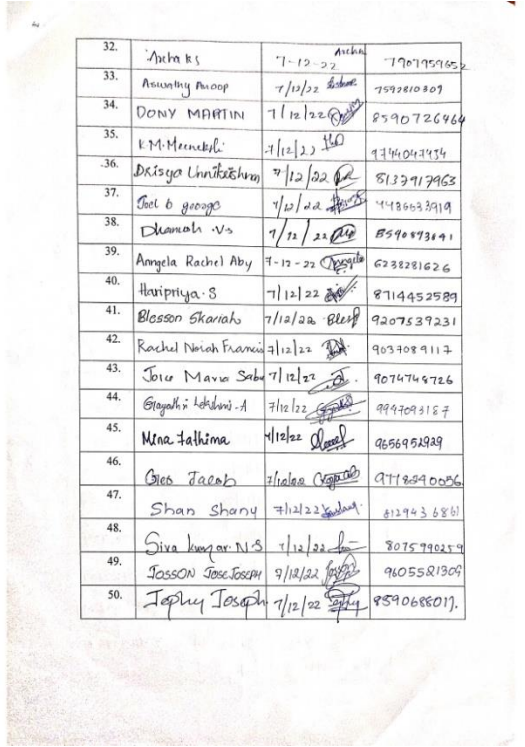 32. Archa KS 7-12-22 Archa 7907959652
33. Aswathy Anoop 7/12/22 7592810309
34. DONY MARTIN 7/12/22 8590726464
35. K.M. Meenakshi 7/12/22 9744047434
36. Drisya Unnikrishnan 7/12/22 8137917963
37. Joel b george 7/12/22
38. V.S 7/12/22
39. Anngela Rachel Aby 7-12-22 Anngela 6238281626
40. Haripriya.S 7/12/22 8714452589
41. Blesson Skariah 7/12/22 Bless 9207539231
42. Rachel Noiah Francis 7/12/22 9037089117
43. Joice Maria Sabu 7/12/22 9074748726
44. Gayathri Lekshmi-A 7/12/22 9947093187
45. Mina Fathima 7/12/22 9656952929
46. Jacob 7/12/22 9778290056
47. Shan Shany 7/12/22 8129436861
48. Siva kumar.N.S 7/12/22 8075990259
49. JOSSON JOSE JOSEPH 7/12/22 9605521309
50. Jephy Joseph 7/12/22 Jephy 8590688017.